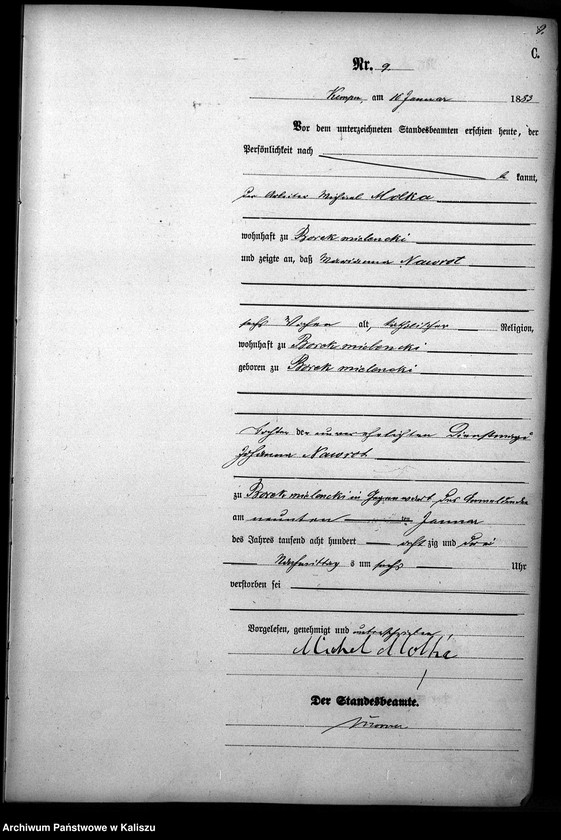 9.
C.
Nr. 9.
Kempen, am 10 Januar 1883
Vor dem unterzeichneten Standesbeamten erschien heute, der
Persönlichkeit nach
be kannt,
der Arbeiter Michael Molka
wohnhaft zu Borek mielencki
und zeigte an, daß Marianna Nawrot
sechs Wochen alt, katholischer Religion,
wohnhaft zu Borek mielencki
geboren zu Borek mielencki
Tochter der unverehelichten Dienstmagd
Johanna Nawrot
zu Borek mielencki in Gegenwart des Anmeldenden
am neunten ten Januar
des Jahres tausend acht hundert acht zig und drei
Nachmittag s um sechs Uhr
verstorben sei
Vorgelesen, genehmigt und unterschrieben
Michel Molka
Der Standesbeamte.
Archiwum Państwowe w Kaliszu